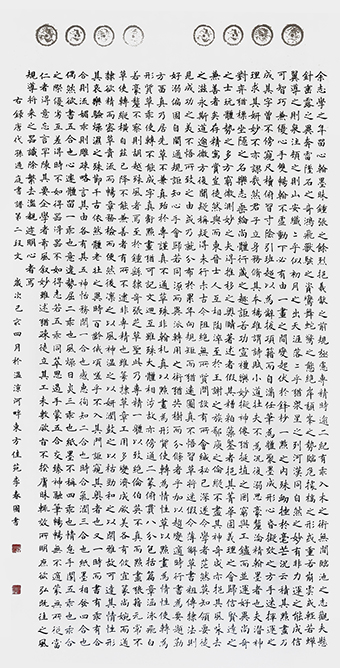 余志學之年留心翰墨味鍾張之餘烈挹羲獻之前規極慮專精時逾二紀有乖入木之術無間臨池之志觀夫懸
針垂露之異奔雷墜石之奇鴻飛獸駭之資鸞舞蛇驚之態絕岸頹峯之勢臨危據槁之形或重若崩雲或輕若蟬
翼導之則泉注頓之則山安纖纖乎似初月之出天涯落落乎猶衆星之列河漢同自然之妙有非力運之能成信
可謂智巧兼優心手雙暢翰不虛動下必有由一畫之間變起伏於鋒杪一點之內殊衄挫於毫芒況云積其點畫乃
成其字曾不傍窺尺牘俯習寸陰引班超以為辭援項籍而自滿任筆為體聚墨成形心昏擬效之方手迷揮運之
理求其妍妙不亦謬哉然君子立身務修其本揚雄謂詩賦小道壯夫不為況復溺思毫釐淪精翰墨者也夫潛神
對弈猶標坐隱之名樂志垂綸尚體行藏之趣詎若功定禮樂妙擬神仙猶埏埴之罔窮與工鑪而並運好異尚奇
之士玩體勢之多方窮微測妙之夫得推移之奧賾著述者假其糟粕藻鑒者挹其菁華固義理之會歸信賢達之
兼善者矣存精寓賞豈徒然與而東晉士人互相陶淬至於王謝之族郗庾之倫縱不盡其神奇咸亦挹其風味去
之滋永斯道愈微方復聞疑稱疑得末行末古今阻絕無所質問設有所會緘秘已深遂令學者茫然莫知領要徒
見成功之美不悟所致之由或乃就分布於累年向規矩而猶遠圖真不悟習草將迷假令薄解草書粗傳隸法則
好溺偏固自閡通規詎知心手會歸若同源而異派轉用之術猶共樹而分條者乎加以趨變適時行書為要題勒
方畐真乃居先草不兼真殆於專謹真不通草殊非翰札真以點畫為形質使轉為情性草以點畫為情性使轉為
形質草乖使轉不能成字真虧點畫猶可記文迴互雖殊大體相涉故亦傍通二篆俯貫八分包括篇章涵泳飛白
若毫釐不察則胡越殊風者焉至如鍾繇隸奇張芝草聖此乃專精一體以致絕倫伯英不真而點畫狼藉元常不
草使轉縱橫自茲已降不能兼善者有所不逮非專精也雖篆隸草章工用多變濟成厥美各有攸宜篆尚婉而通
隸欲精而密草貴流而暢章務檢而便然後凜之以風神溫之以妍潤鼓之以枯勁和之以閑雅故可達其情性形
其哀樂驗燥濕之殊節千古依然體老壯之異時百齡俄頃嗟乎不入其門詎窺其奧者也又一時而書有乖有合
合則流媚乖則彫疏略言其由各有其五神怡務閑一合也感惠徇知二合也時和氣潤三合也紙墨相發四合也偶
然欲書五合也心遽體留一乖也意違勢屈二乖也風燥日炎三乖也紙墨不稱四乖也情怠手闌五乖也乖合
之際優劣互差得時不如得器得器不如得志若五乖同萃思遏手蒙五合交臻神融筆暢暢無不適蒙無所從當
仁者得意忘言罕陳其要企學者希風敘妙雖述猶疏徒立其工未敷厥旨不揆庸昧輒效所明庶欲弘既往之風
規導將來之器識除繁去濫睹迹明心者焉
右錄唐代孫過庭書譜第二段文 歲次己亥四月於溫涼河畔東方佳苑李春圖書